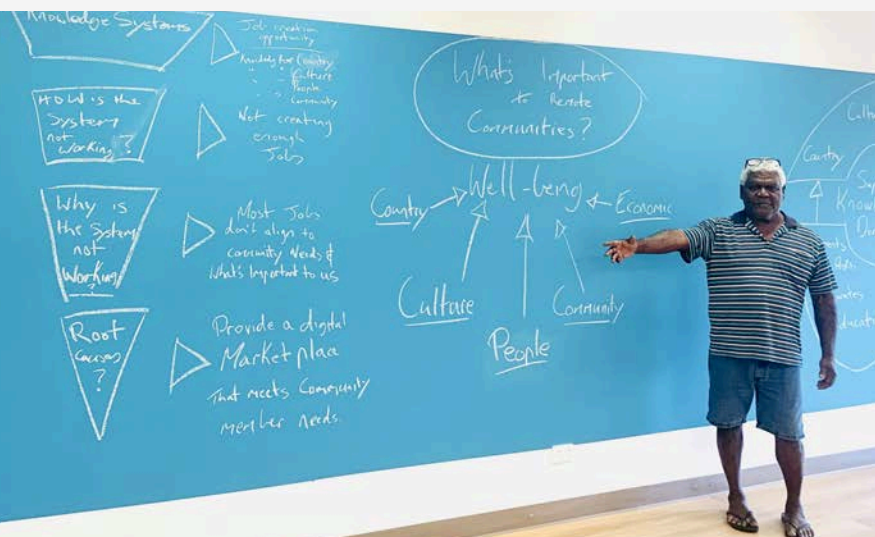 Knowledge Systems
Job creation
opportunity
Country
" " Culture
" " People
" " Community
HOW is the
System
not
Working?
Not creating
enough
Jobs
Why is
the System
not
Working?
Most Jobs
don't align to
community Needs &
What's Important to us
Root
Causes
?
Provide a digital
Market place
That meets Community
member needs.
What's Important
to Remote
Communities?
Well-being
Country
Economic
Culture
Community
People
Country